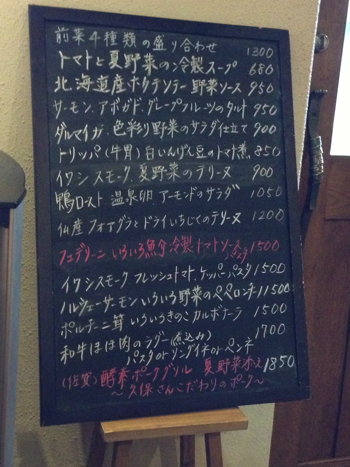 前菜4種類の盛り合わせ 1300
トマトと夏野菜の冷製スープ 680
北海道産ホタテソテー野菜ソース 950
サーモン、アボガド、グレープフルーツのタルト 950
ダルマイカ、色彩り野菜のサラダ仕立て 900
トリッパ(牛胃)白いんげん豆のトマト煮 850
イワシスモーク、夏野菜のテリーヌ 900
鴨ロースト 温泉卵 アーモンドのサラダ 1050
仏産フォアグラとドライいちじくのテリーヌ 1200
フェデリーニ いろいろ魚介 冷製トマトソースパスタ 1500
イワシスモーク フレッシュトマト、ケッパーパスタ 1500
ノルウェーサーモン いろいろ野菜のペペロンチーノ 1500
ポルチーニ茸 いろいろきのこ カルボナーラ 1500
和牛ほほ肉のラグー(煮込み) 1700
パスタ or リングイネ or ペンネ
(佐賀)酵素ポークグリル 夏野菜 1850
〜久保さんこだわりのポーク〜